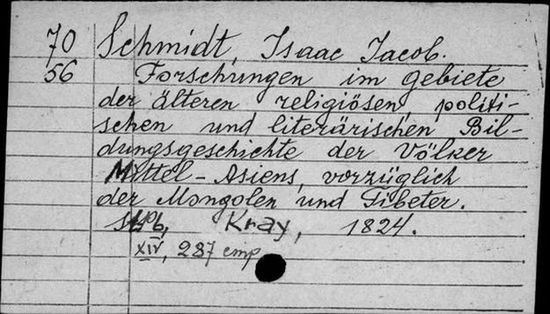 70 Schmidt, Isaac Jacob.
56 Forschungen im gebiete
der älteren religiösen, politi-
schen und literärischen Bil-
dungsgeschichte der Völker
Mittel-Asiens, vorzüglich
der Mongolen und Tibeter.
Stpb, Kray, 1824.
XIV, 287 стр